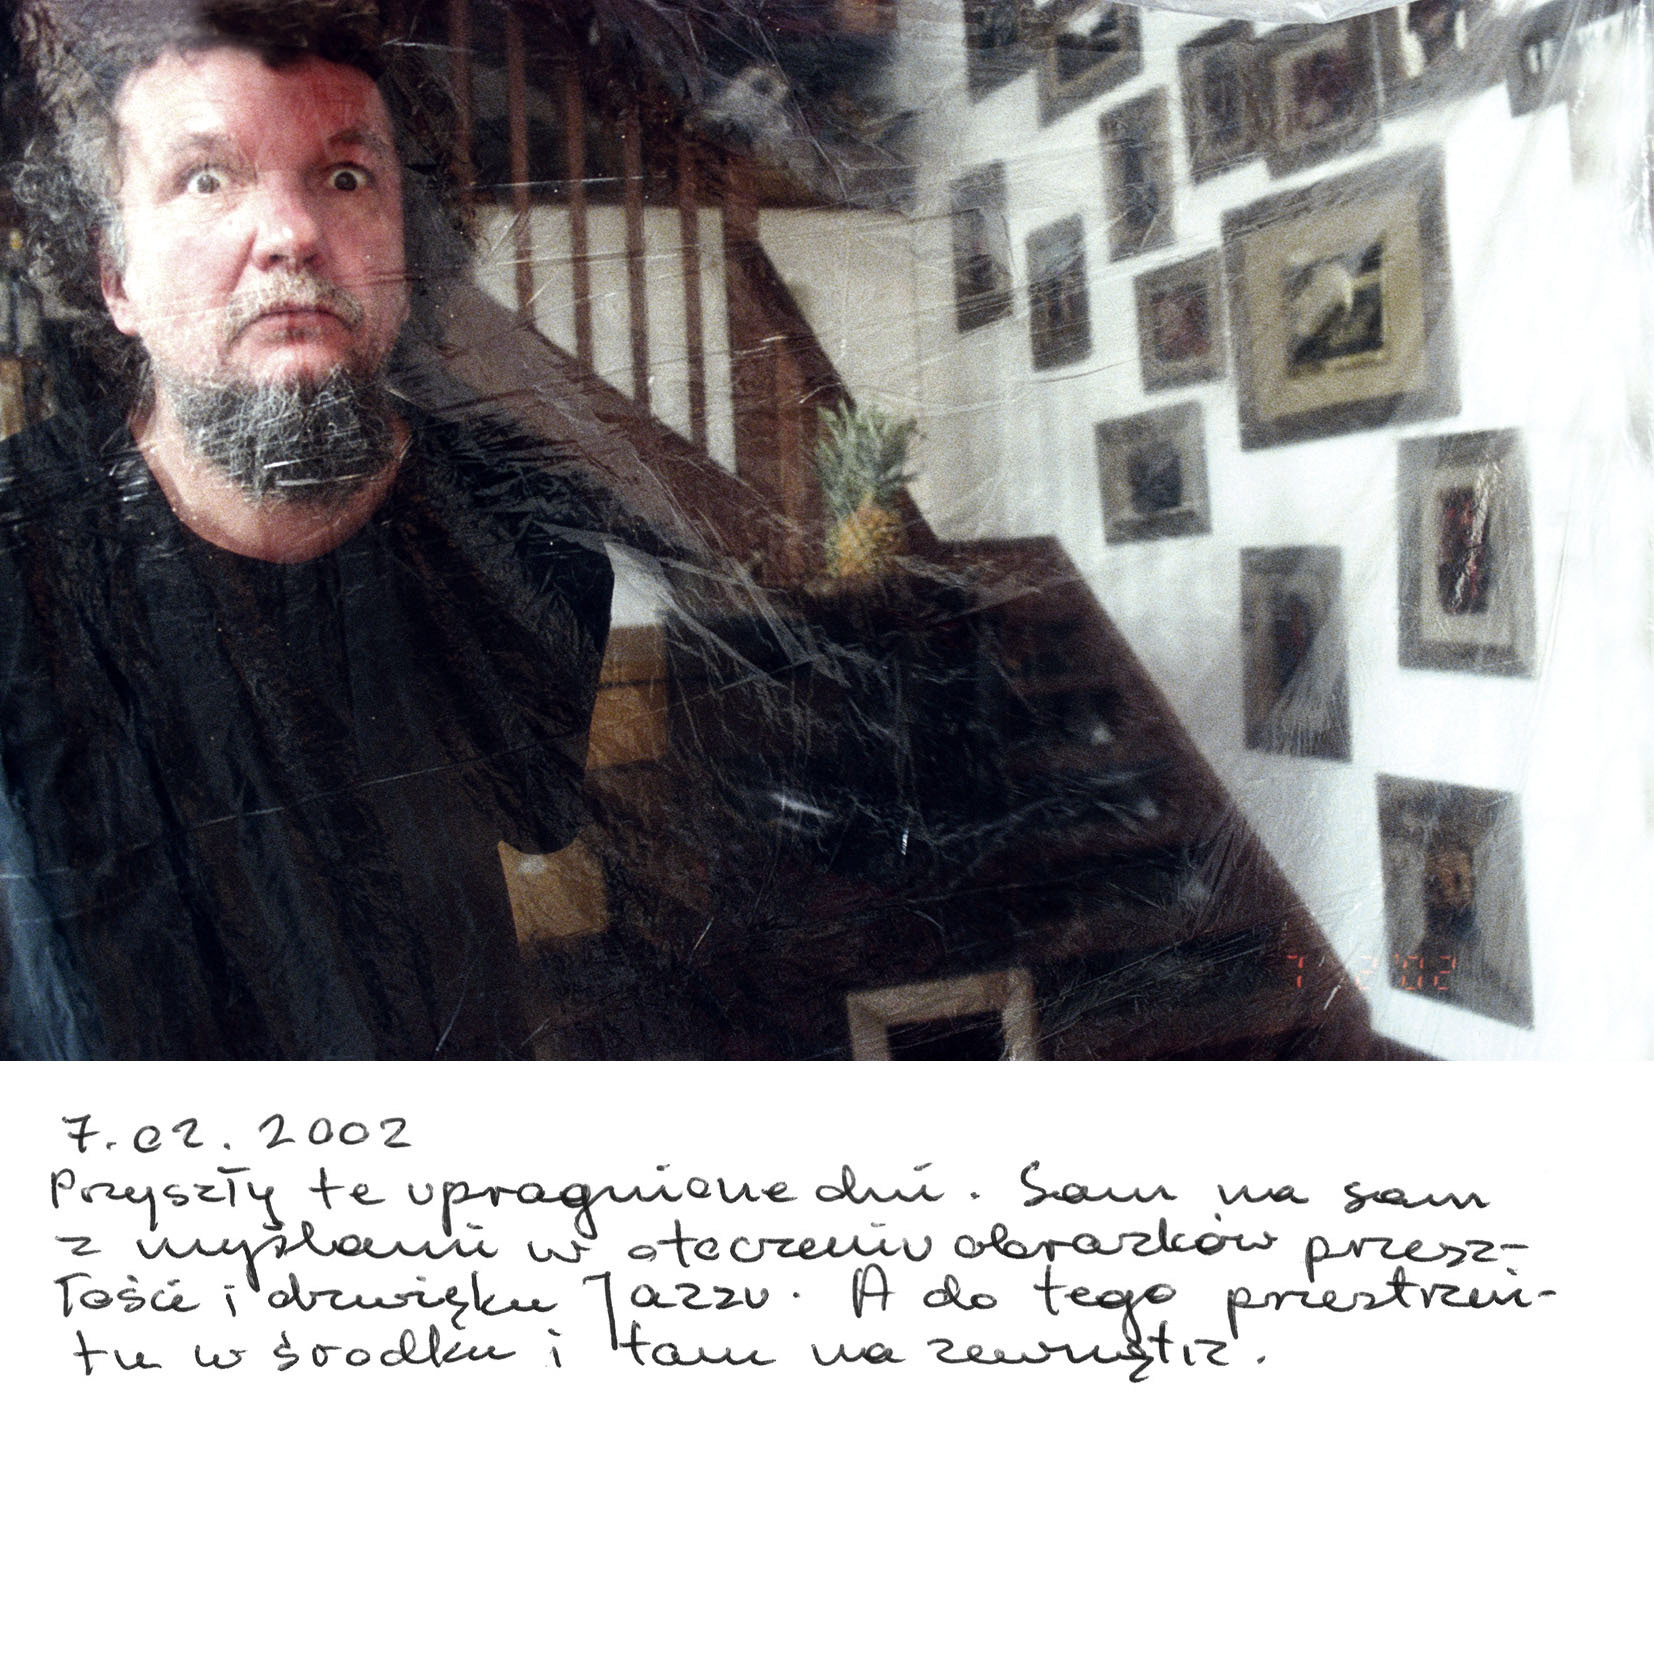 7 2 '02
7.02.2002
Przyszły te upragnione dni. Sam na sam
z myślami w otoczeniu obrazków przesz-
łości i dźwięku Jazzu. A do tego przestrzeń-
tu w środku i tam na zewnątrz.